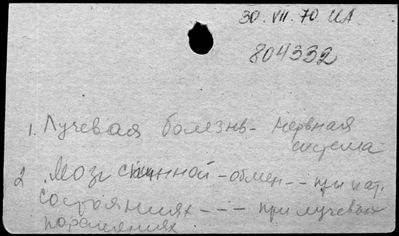 30. VII. 70 ЦА
804332
1. Лучевая болезнь - нервная
система
2. Мозг спинной - обмен - - при пат.
состояниях - - - при лучевых
поражениях